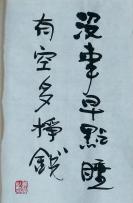 没事早點睡
有空多掙錢